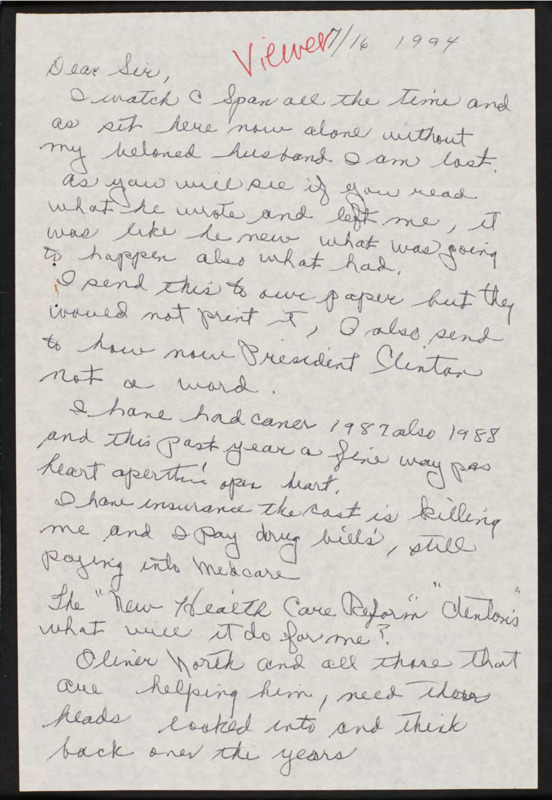 Viewer 7/16 1994
Dear Sir,
I watch C Span all the time and
as sit here now alone without
my beloved husband I am lost.
as you will see if you read
what he wrote and left me, it
was like he new what was going
to happen also what had.
I send this to our paper but they
would not print it, I also send
to how now President Clinton
not a word.
I have had caner 1987 also 1988
and this past year a five way pas
heart open heart.
I have insurance the cost is killing
me and I pay drug bills, still
paying into Medcare
The "New Health Care Reform" "Clenton's"
what will it do for me?
Oliver North and all those that
are helping him, need
heads looked into and think
back over the years